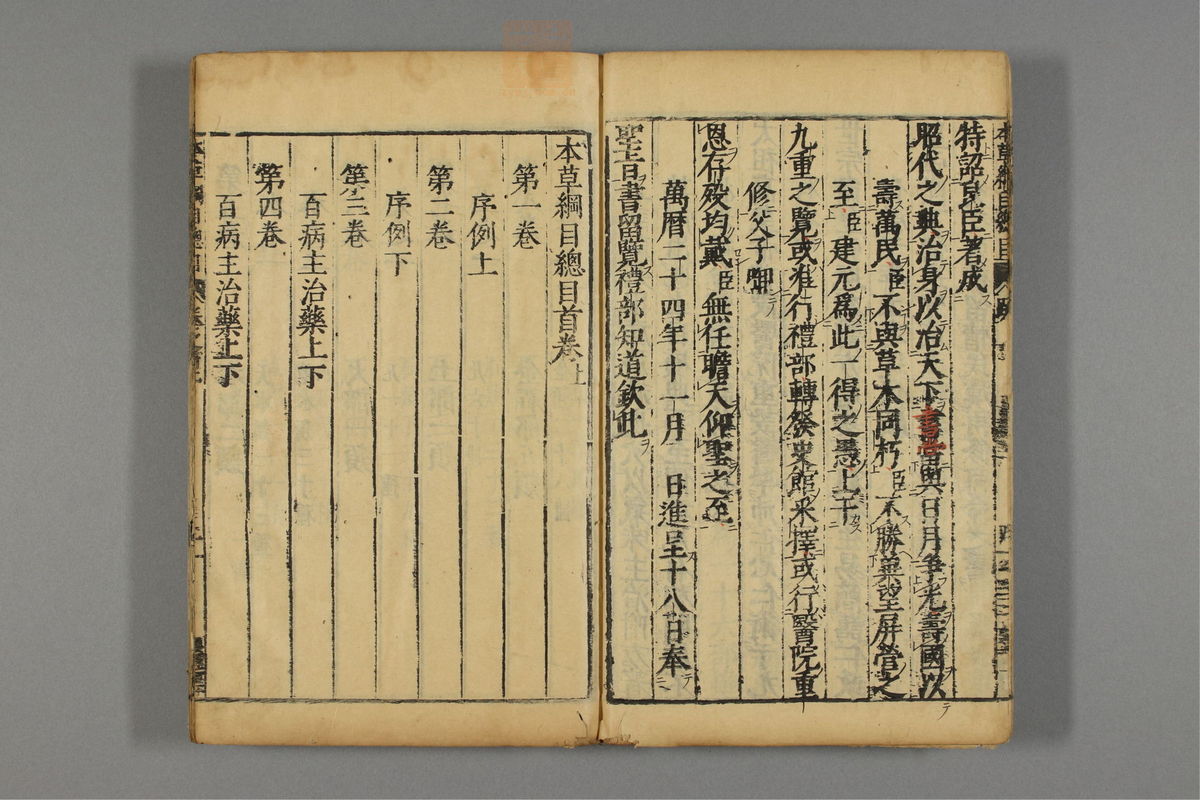 特詔見臣著成
昭代之典治身以治天下書當與日月爭光壽國以
壽萬民臣不與草木同朽臣不勝冀望屏營之
至臣建元爲此一得之愚上干
九重之覽或准行禮部轉發史館采擇或行醫院重
修父子啣
恩存歿均戴臣無任瞻天仰聖之至
萬曆二十四年十一月 日進呈十八日奉
聖旨書留覽禮部知道欽此
本草綱目總目首卷上
第一卷
序例上
第二卷
序例下
第三卷
百病主治藥上下
第四卷
百病主治藥上下